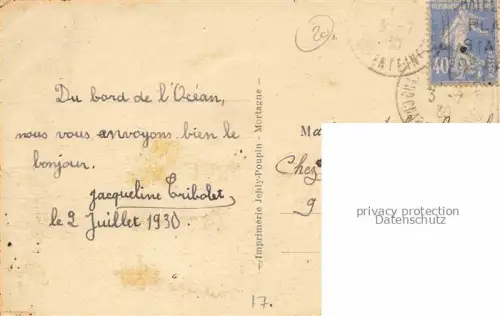 20
Du bord de l'Océan,
nous vous envoyons bien le
bonjour.
Jacqueline Tribolet,
le 2 Juillet 1930.
Imprimerie Jehly-Poupin - Mortagne -
40c
3-7
30
Chez
9
privacy protection
Datenschutz
17.